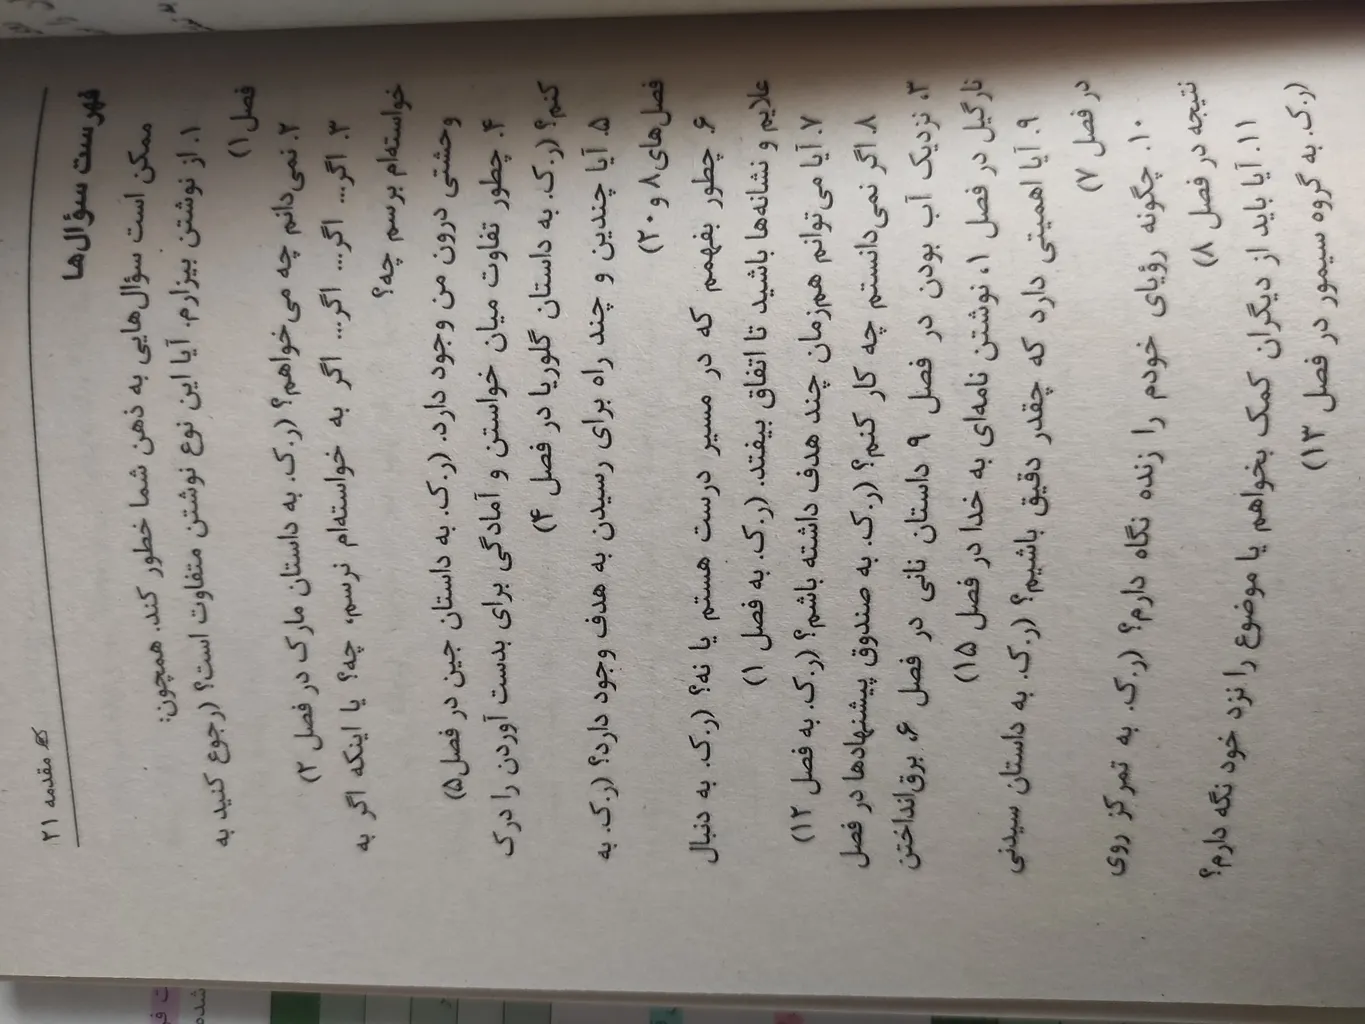 مقدمه ۲۱
فهرست سؤال‌ها
ممکن است سؤال‌هایی به ذهن شما خطور کند. همچون:
۱. از نوشتن بیزارم. آیا این نوع نوشتن متفاوت است؟ (رجوع کنید به
فصل ۱)
۲. نمی‌دانم چه می‌خواهم؟ (ر.ک. به داستان مارک در فصل ۲)
۳. اگر... اگر... اگر... اگر به خواسته‌ام نرسم، چه؟ یا اینکه اگر به
خواسته‌ام برسم چه؟
وحشتی درون من وجود دارد. (ر.ک. به داستان جین در فصل۵)
۴. چطور تفاوت میان خواستن و آمادگی برای بدست آوردن را درک
کنم؟ (ر.ک. به داستان گلوریا در فصل ۴)
۵. آیا چندین و چند راه برای رسیدن به هدف وجود دارد؟ (ر.ک. به
فصل‌های ۸ و ۲۰)
۶. چطور بفهمم که در مسیر درست هستم یا نه؟ (ر.ک. به دنبال
علایم و نشانه‌ها باشید تا اتفاق بیفتد. (ر.ک. به فصل ۱)
۷. آیا می‌توانم هم‌زمان چند هدف داشته باشم؟ (ر.ک. به فصل ۱۲)
۸. اگر نمی‌دانستم چه کار کنم؟ (ر.ک. به صندوق پیشنهادها در فصل
۳، نزدیک آب بودن در فصل ۹ داستان نانی در فصل ۶، برق‌انداختن
نارگیل در فصل ۱، نوشتن نامه‌ای به خدا در فصل ۱۵)
۹. آیا اهمیتی دارد که چقدر دقیق باشیم؟ (ر.ک. به داستان سیدنی
در فصل ۷)
۱۰. چگونه رؤیای خودم را زنده نگاه دارم؟ (ر.ک. به تمرکز روی
نتیجه در فصل ۸)
۱۱. آیا باید از دیگران کمک بخواهم یا موضوع را نزد خود نگه دارم؟
(ر.ک. به گروه سیمور در فصل ۱۳)